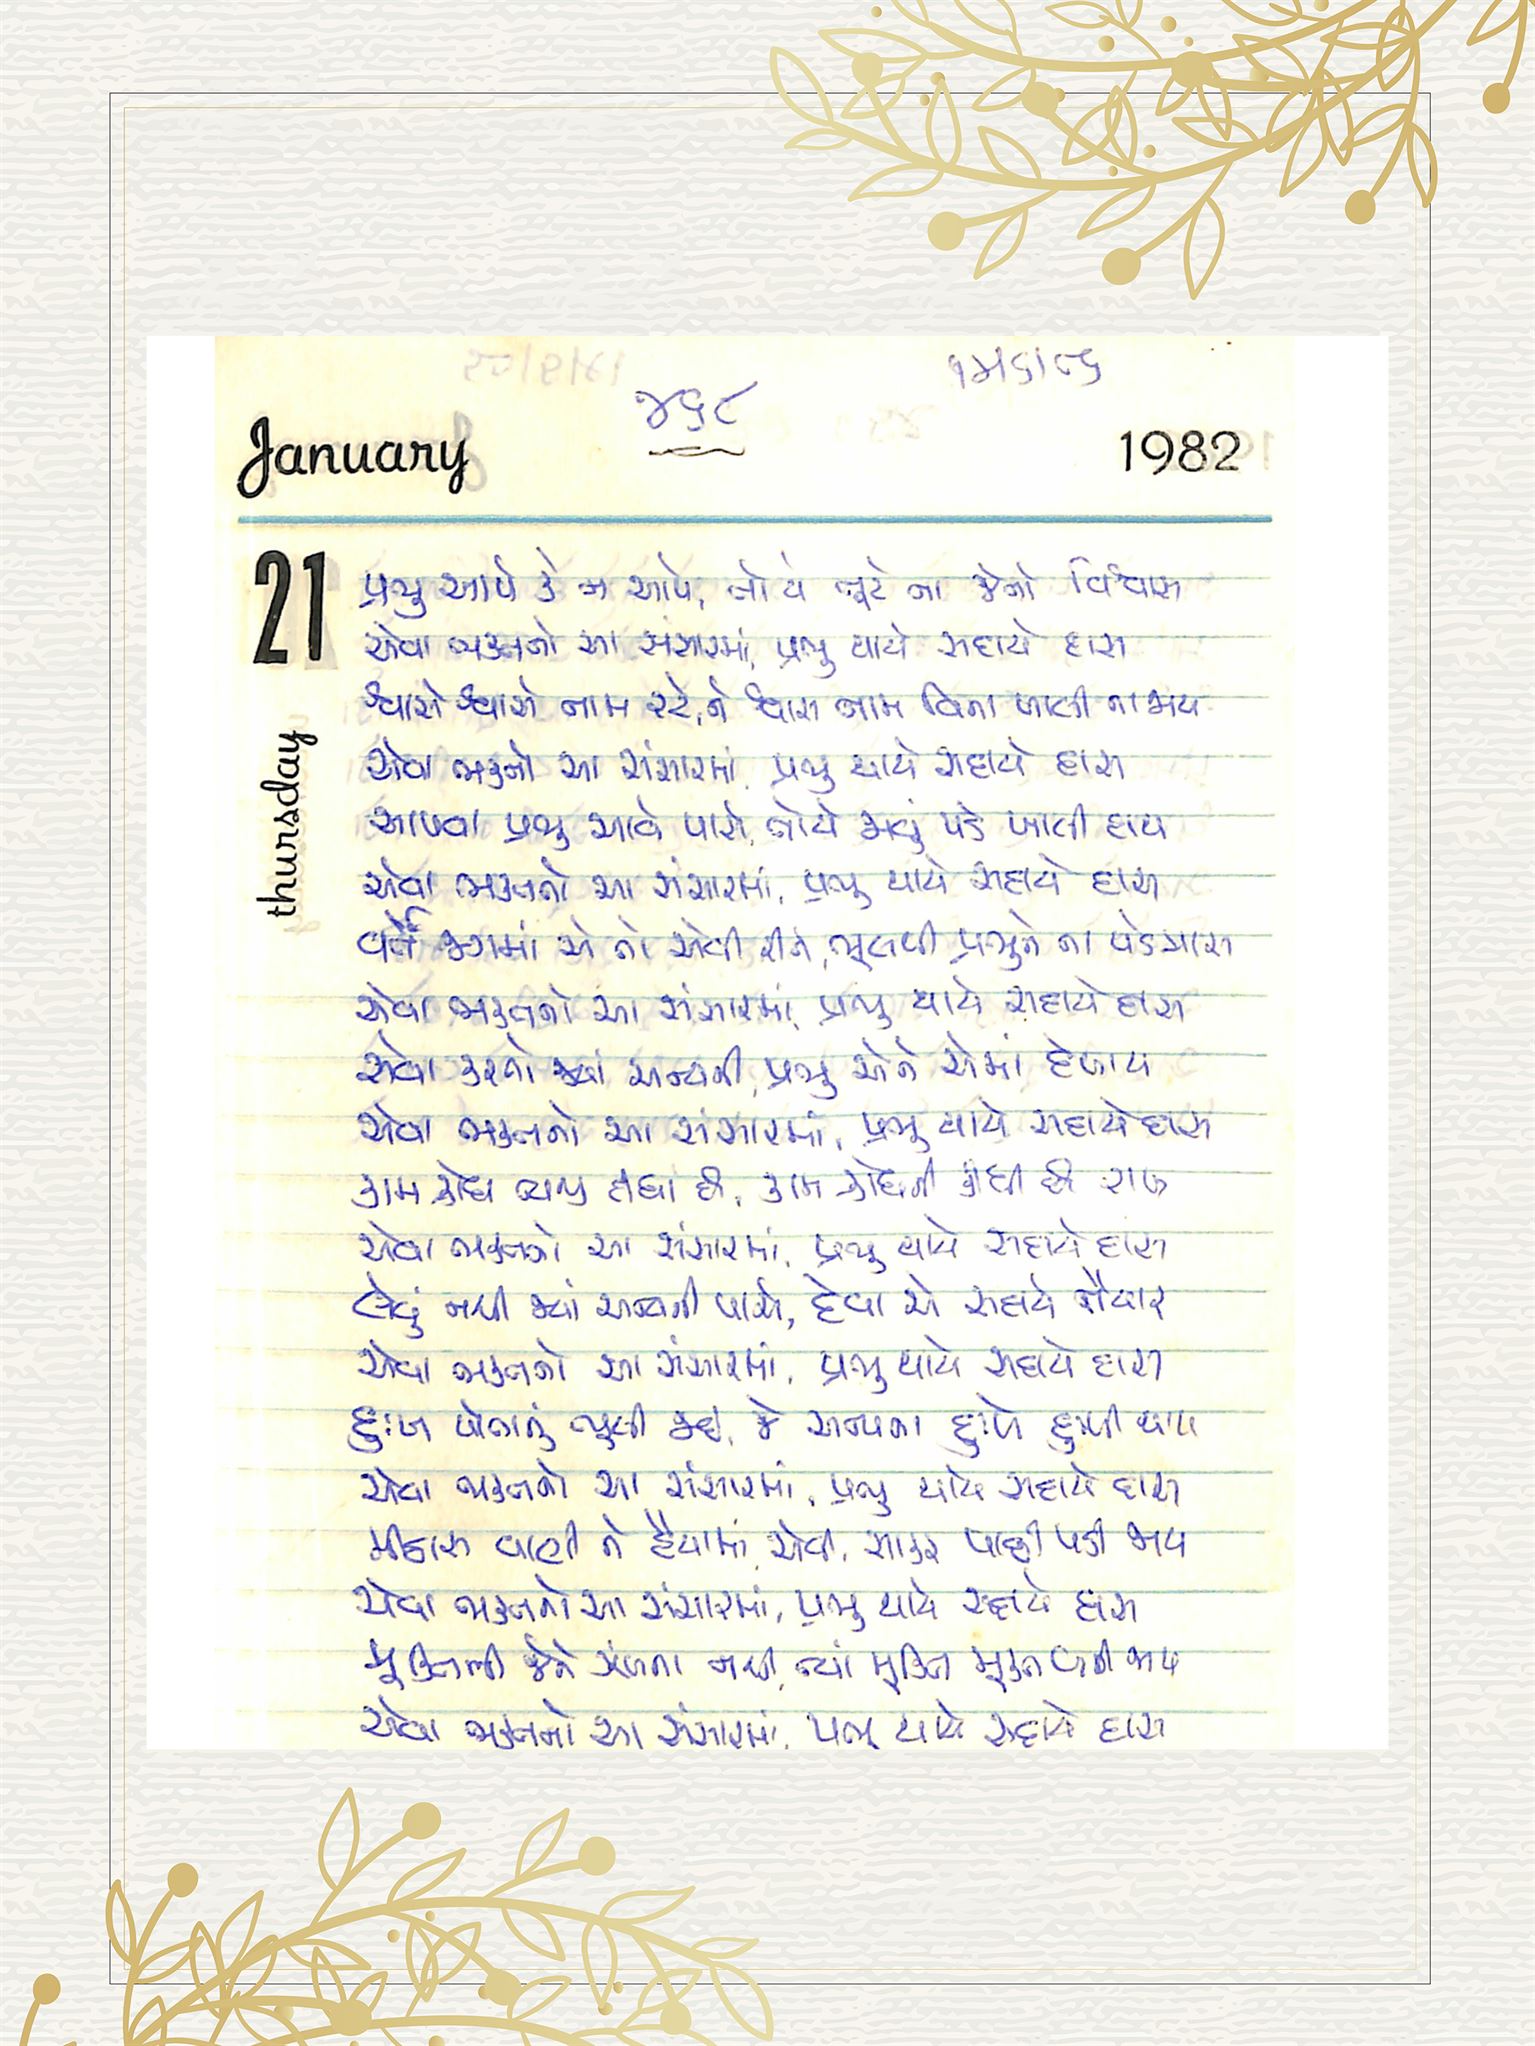 ૧૪/૬/૮૬
૪૬૮
January 1982
21
thursday
પ્રભુ આપે કે ન આપે, તોયે તૂટે ના જેનો વિશ્વાસ
એવા ભક્તનો આ સંસારમાં, પ્રભુ થાયે સદાયે દાસ
શ્વાસે શ્વાસે નામ રટે, ને શ્વાસ નામ વિના ખાલી ના જાય
એવા ભક્તનો આ સંસારમાં, પ્રભુ થાયે સદાયે દાસ
આપવા પ્રભુ આવે પાસે, તોયે જાવું પડે ખાલી હાથ
એવા ભક્તનો આ સંસારમાં, પ્રભુ થાયે સદાયે દાસ
વર્તે જગમાં એ તો એવી રીતે, ભૂલથી પ્રભુને ના પડે ત્રાસ
એવા ભક્તનો આ સંસારમાં, પ્રભુ થાયે સદાયે દાસ
સેવા કરતો જ્યાં અન્યની, પ્રભુ એને એમાં દેખાય
એવા ભક્તનો આ સંસારમાં, પ્રભુ થાયે સદાયે દાસ
કામ ક્રોધ ત્યજી દીધાં છે, કામ ક્રોધની કીધી છે રાખ
એવા ભક્તનો આ સંસારમાં, પ્રભુ થાયે સદાયે દાસ
લેવું નથી જ્યાં અન્યની પાસે, દેવા એ સદાયે તૈયાર
એવા ભક્તનો આ સંસારમાં, પ્રભુ થાયે સદાયે દાસ
દુઃખ પોતાનું ભુલી જઇ, જે અન્યના દુઃખે દુઃખી થાય
એવા ભક્તનો આ સંસારમાં, પ્રભુ થાયે સદાયે દાસ
મીઠાસ વાણી ને હૈયામાં એવી, સાકર પાછી પડી જાય
એવા ભક્તનો આ સંસારમાં, પ્રભુ થાયે સદાયે દાસ
મૂક્તિની જેને ઝંખના નથી, ત્યાં મૂક્તિ મૂક્ત બની જાય
એવા ભક્તનો આ સંસારમાં, પ્રભુ થાયે સદાયે દાસ